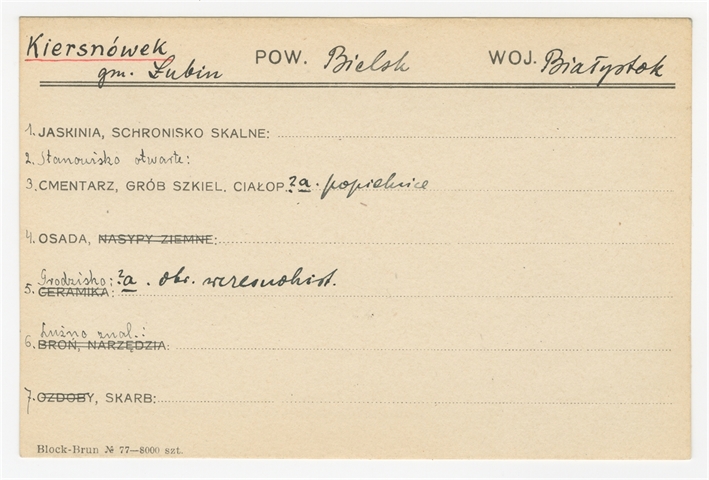 Kiersnówek POW. Bielsk WOJ. Białystok
gm. Łubin
1. JASKINIA, SCHRONISKO SKALNE:
2. Stanowisko otwarte:
3. CMENTARZ, GRÓB SZKIEL. CIAŁOP. ?a. popielnice
4. OSADA, NASYPY ZIEMNE:
Grodzisko: ?a. okr. wczesnohist.
5. CERAMIKA:
Luźno znal.:
6. BROŃ, NARZĘDZIA:
7. OZDOBY, SKARB:
Block-Brun № 77—8000 szt.